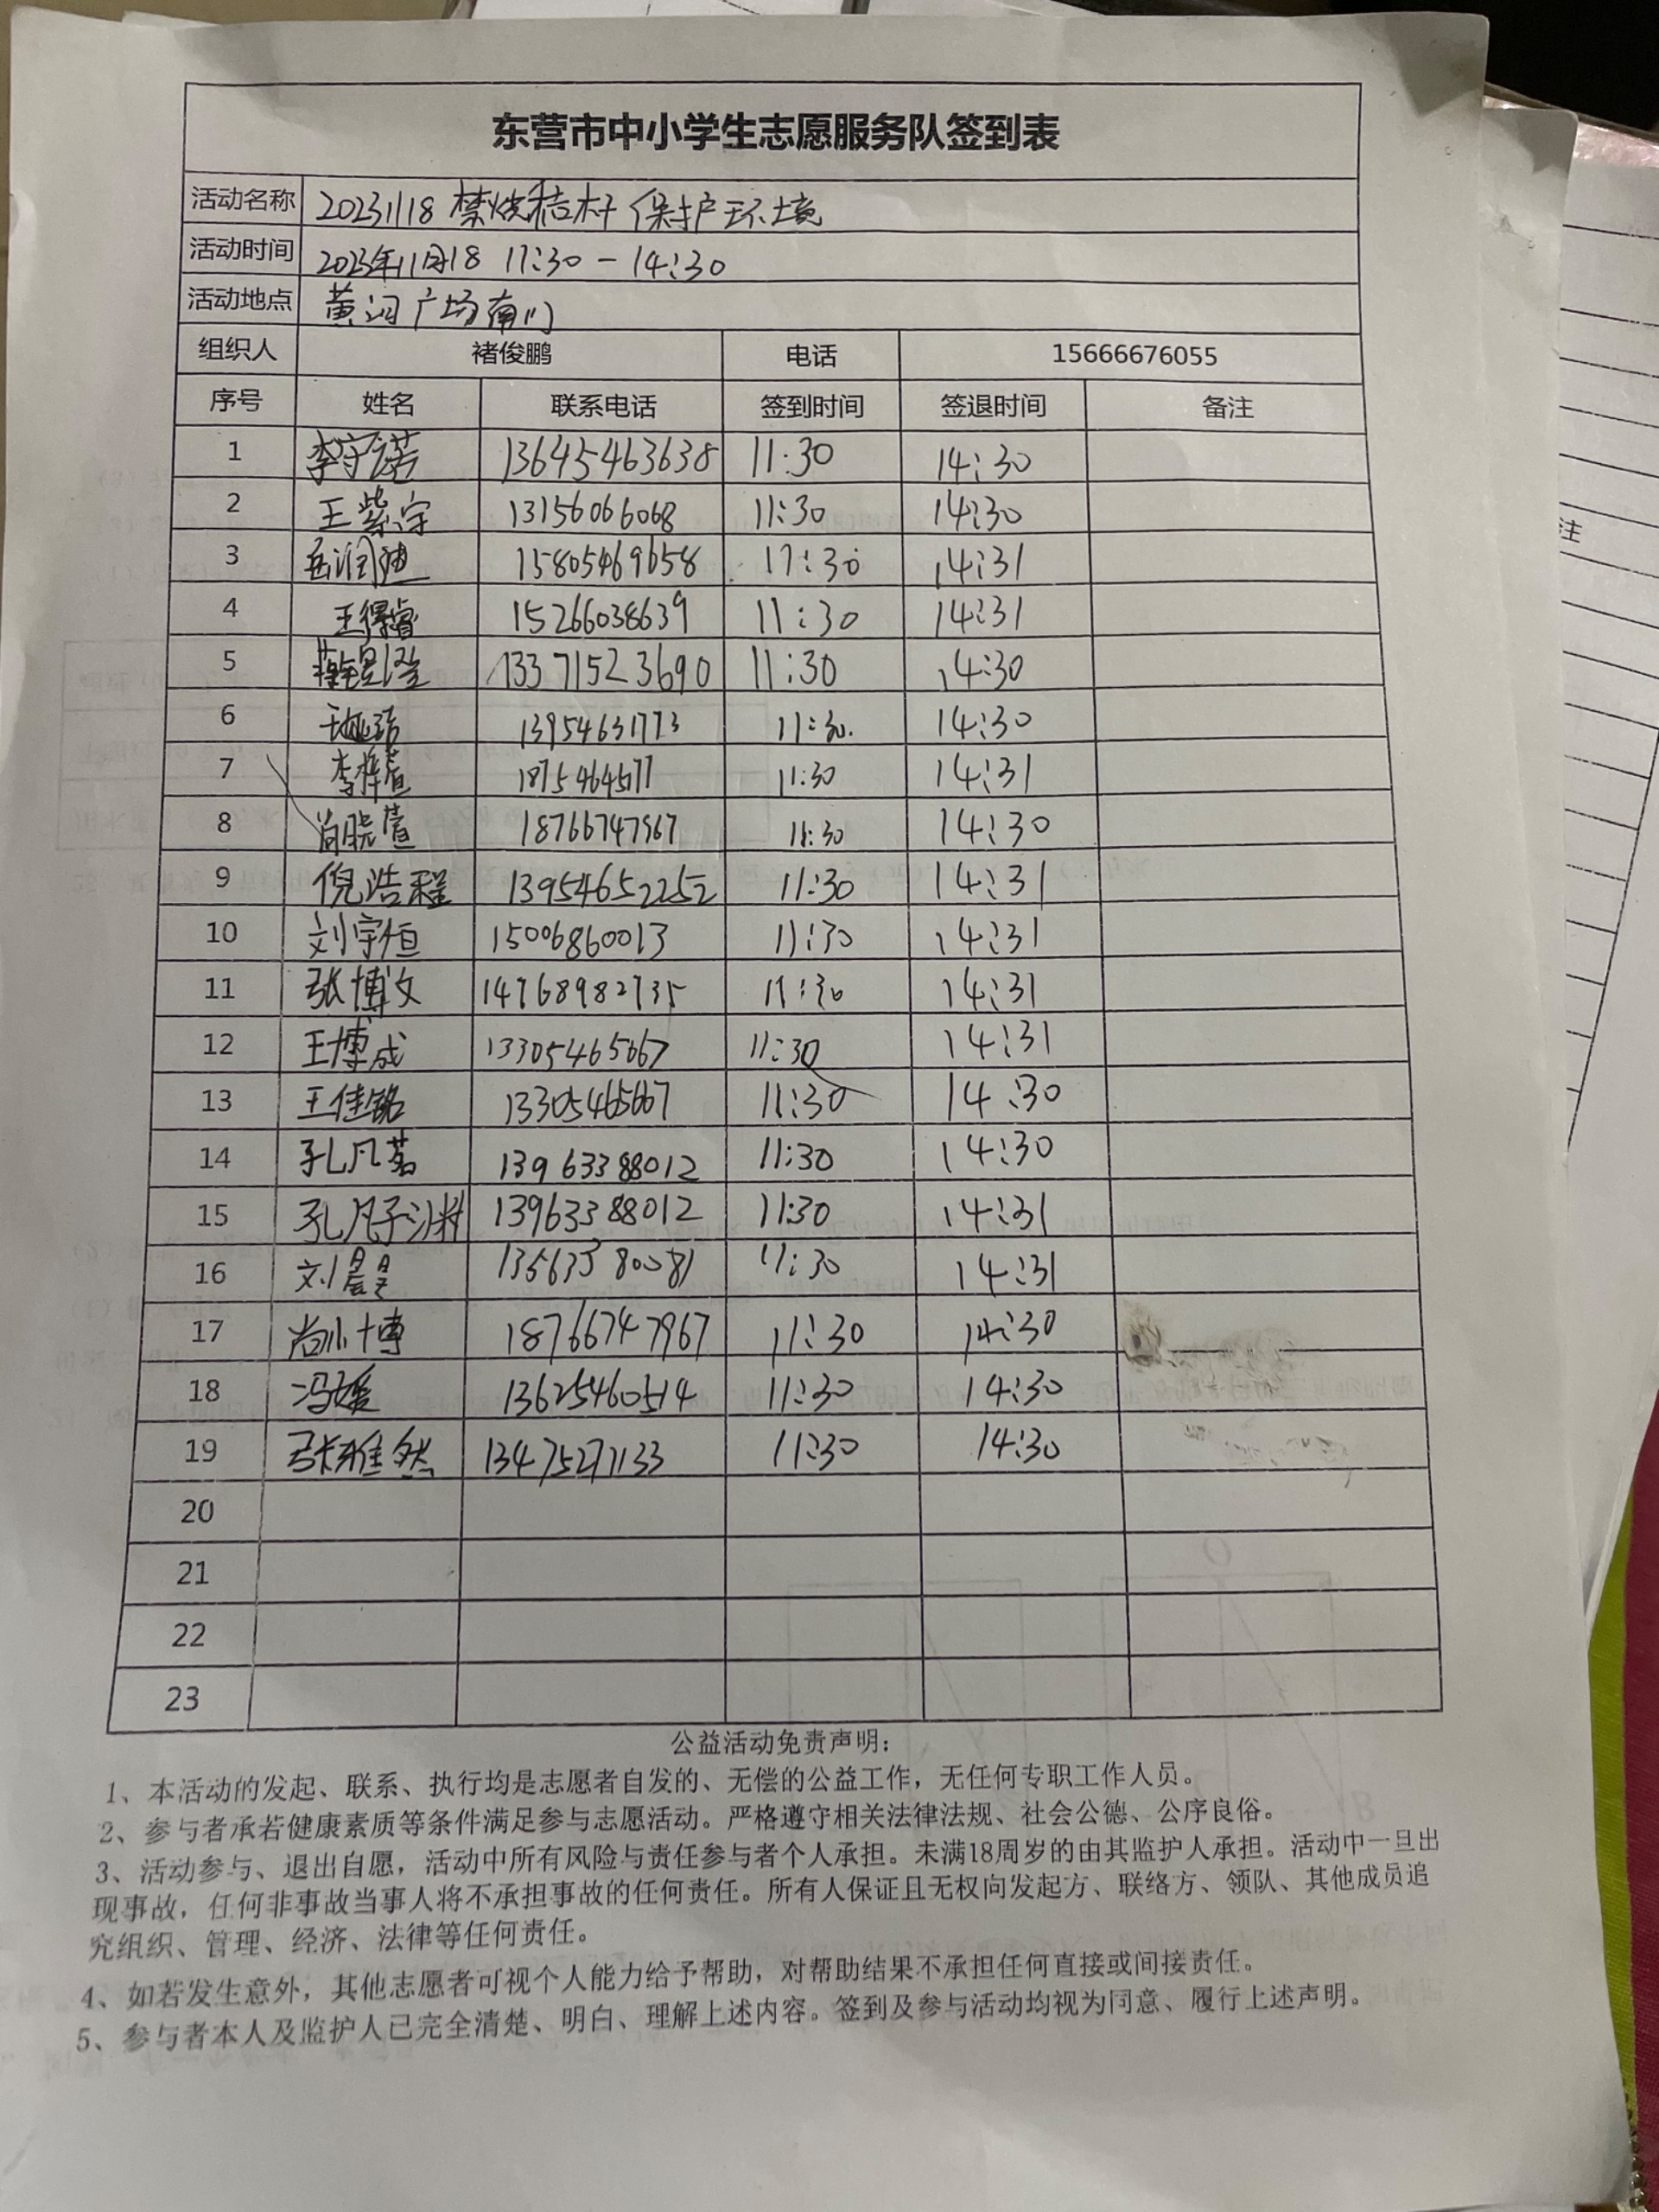 东营市中小学生志愿服务队签到表
活动名称 20231118 禁烧秸秆 保护环境
活动时间 2023年11月18 11:30-14:30
活动地点 黄河广场南门
组织人 褚俊鹏 电话 15666676055
序号 姓名 联系电话 签到时间 签退时间 备注
1 李守诺 13645463638 11:30 14:30
2 王紫宇 13156066068 11:30 14:30
3 15805469658 11:30 14:31
4 王得睿 15266038639 11:30 14:31
5 13371523690 11:30 14:30
6 13954631773 11:30. 14:30
7 李梓萱 11:30 14:31
8 尚晓萱 18766747967 11:30 14:30
9 倪浩程 13954652252 11:30 14:31
10 刘宇恒 15006860013 11:30 14:31
11 张博文 14768982735 11:30 14:31
12 王博成 13305465667 11:30 14:31
13 王佳铭 13305465667 11:30 14:30
14 孔凡茗 13963388012 11:30 14:30
15 孔凡予 13963388012 11:30 14:31
16 刘 13563380081 11:30 14:31
17 尚小博 18766747967 11:30 14:30
18 冯媛 13625460514 11:30 14:30
19 张雅然 13475271133 11:30 14:30
20
21
22
23
公益活动免责声明：
1、本活动的发起、联系、执行均是志愿者自发的、无偿的公益工作，无任何专职工作人员。
2、参与者承若健康素质等条件满足参与志愿活动。严格遵守相关法律法规、社会公德、公序良俗。
3、活动参与、退出自愿，活动中所有风险与责任参与者个人承担。未满18周岁的由其监护人承担。活动中一旦出
现事故，任何非事故当事人将不承担事故的任何责任。所有人保证且无权向发起方、联络方、领队、其他成员追
究组织、管理、经济、法律等任何责任。
4、如若发生意外，其他志愿者可视个人能力给予帮助，对帮助结果不承担任何直接或间接责任。
5、参与者本人及监护人已完全清楚、明白、理解上述内容。签到及参与活动均视为同意、履行上述声明。
注